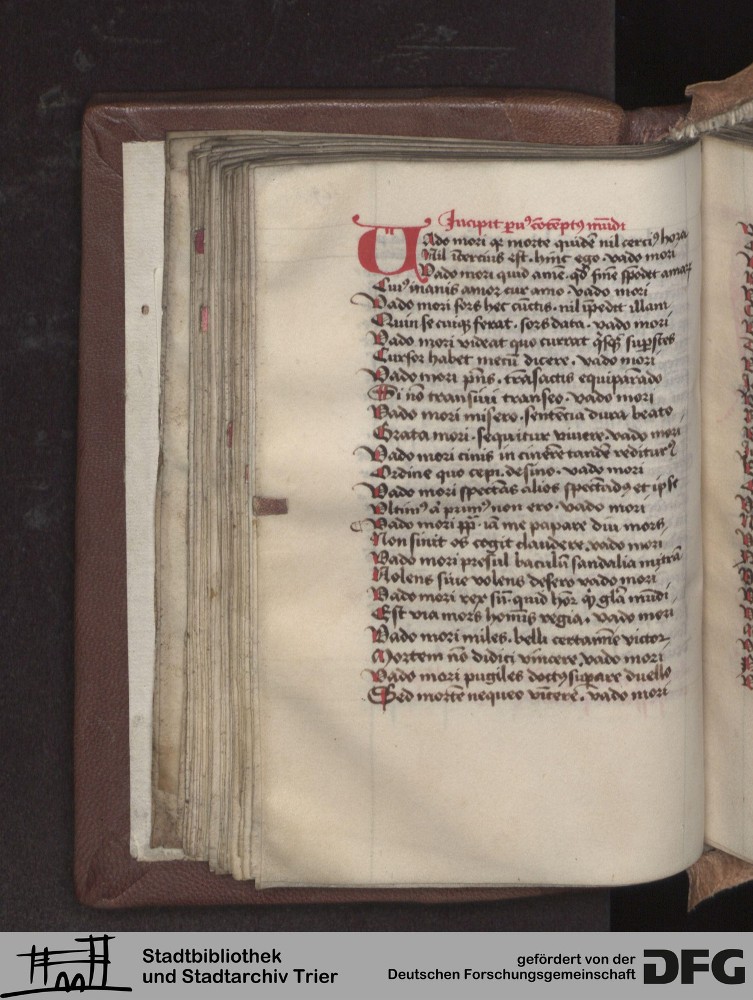 Incipit pu9 cōtēpt9 mūdi
Vado mori qr morte quidē nil cerci9 hora
Nil īcercius est . hinc ego . vado mori
Vado mori quid amē . qd finē spōdet amarū
Cur inanis amor cur amo . vado mori
Vado mori sors hec cūctis . nil īpedit illam
Quin se cuiq ferat . sors data . vado mori
Vado mori videat quo currat qsq supstes
Cursor habet mecū dicere . vado mori
Vado mori pns . trāsactis equiparādo
Si nō transiui transeo . vado mori
Vado mori misero . sentēcia dura beato
Grata mori . sequitur viuere . vado mori
Vado mori cinis in cinerē tandē reditur9
Ordine quo cepi . desino . vado mori
Vado mori spectās alios spectād9 et ipse
Vltim9 a prim9 non ero . vado mori
Vado mori pp . iā me papare diu mors
Non sinit os cogit claudere . vado mori
Vado mori presul baculū sandalia mitrā
Nolens siue volens desero vado mori
Vado mori rex sū . quid hor q gla mūdi
Est via mors homīs regia . vado mori
Vado mori miles . belli certamīe victor
Mortem nō didici vincere . vado mori
Vado mori pugiles doct9 supare duello
Sed mortē nequeo vīcere . vado mori
Stadtbibliothek
und Stadtarchiv Trier
gefördert von der
Deutschen Forschungsgemeinschaft
DFG